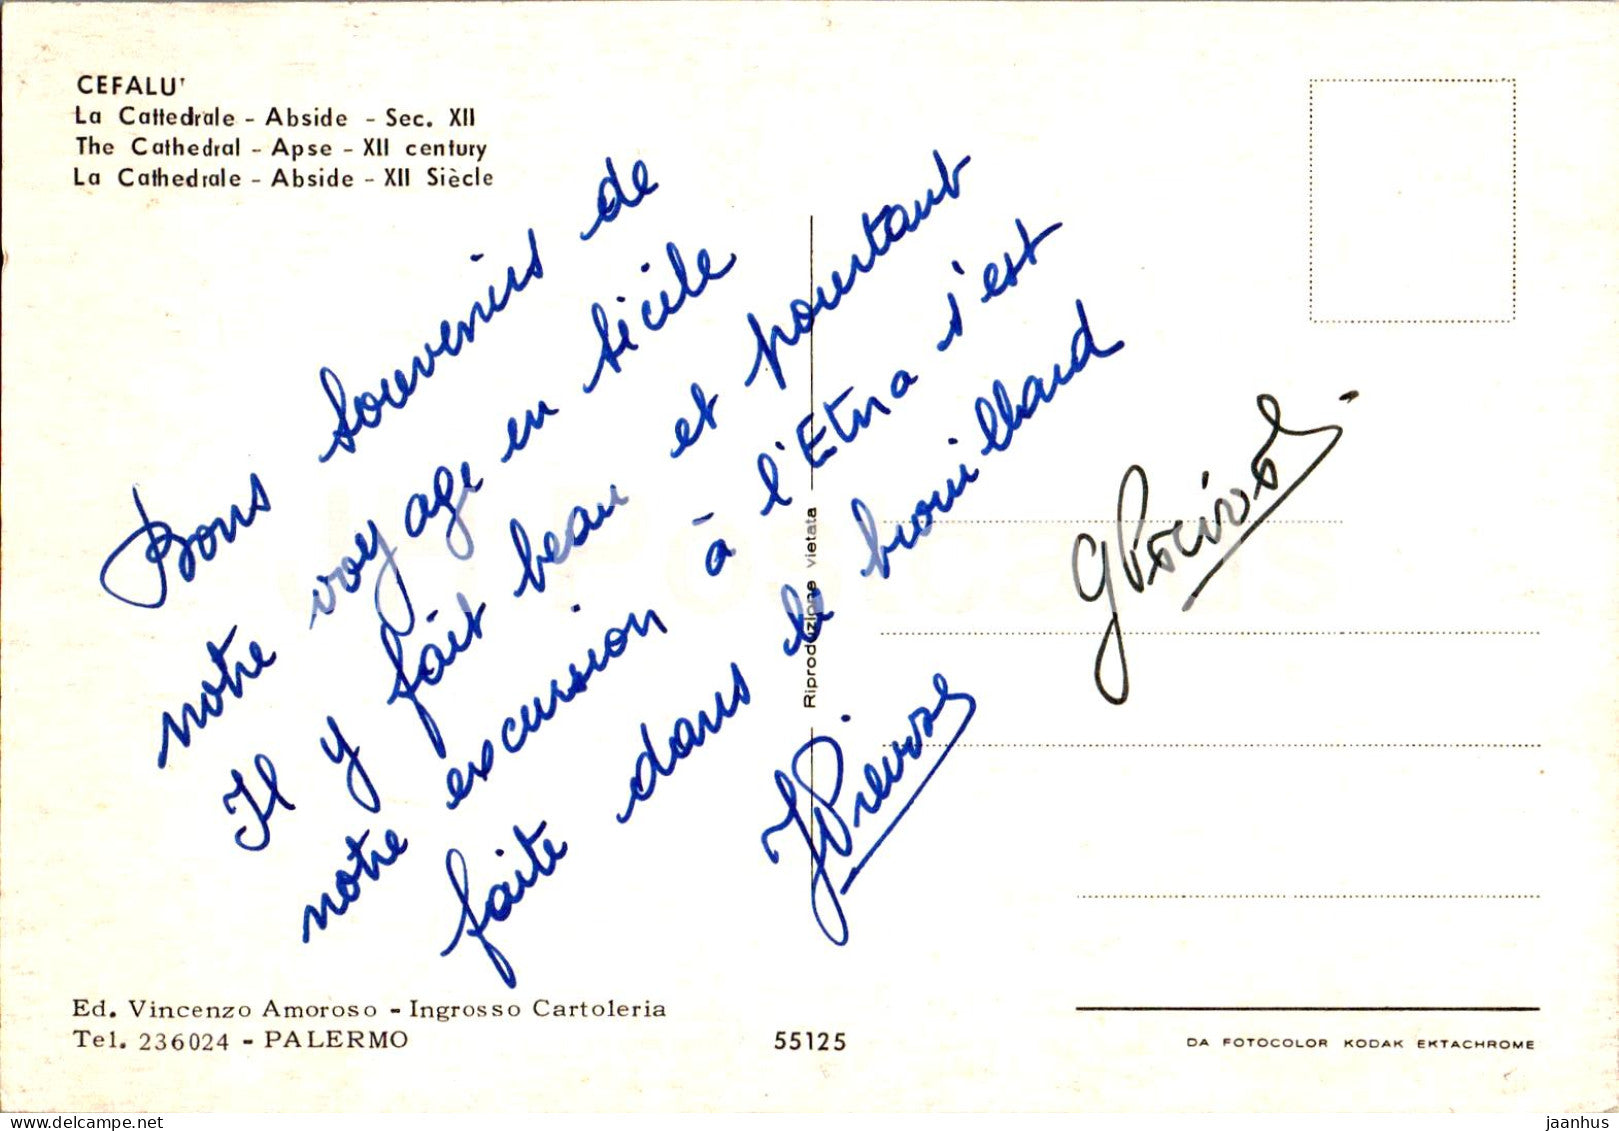 CEFALU'
La Cattedrale - Abside - Sec. XII
The Cathedral - Apse - XII century
La Cathedrale - Abside - XII Siècle
Bons souvenirs de
notre voyage en Sicile
Il y fait beau et pourtant
notre excursion à l'Etna s'est
faite dans le brouillard
Riproduzione vietata
Ed. Vincenzo Amoroso - Ingrosso Cartoleria
Tel. 236024 - PALERMO
55125
DA FOTOCOLOR KODAK EKTACHROME
jaanhus